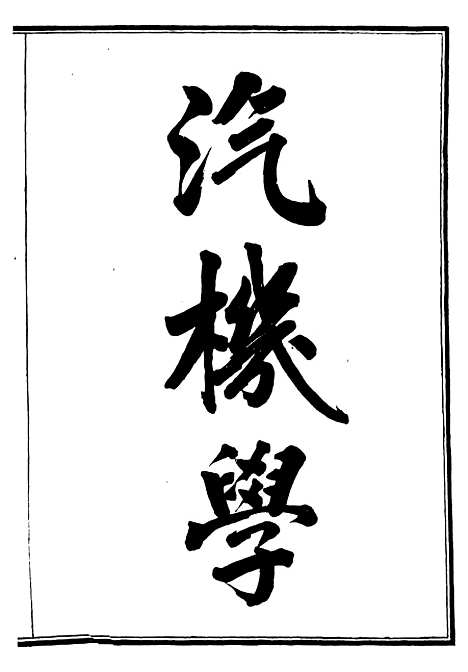 汽機學